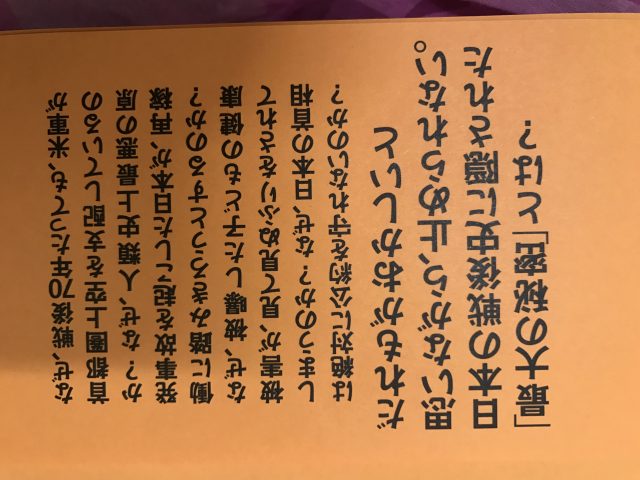 なぜ、戦後70年たっても、米軍が
首都圏上空を支配しているの
か？なぜ、人類史上最悪の原
発事故を起こした日本が、再稼
働に踏みきろうとするのか？
なぜ、被曝した子どもの健康
被害が、見て見ぬふりをされて
しまうのか？なぜ、日本の首相
は絶対に公約を守れないのか？
だれもがおかしいと
思いながら、止められない。
日本の戦後史に隠された
「最大の秘密」とは？